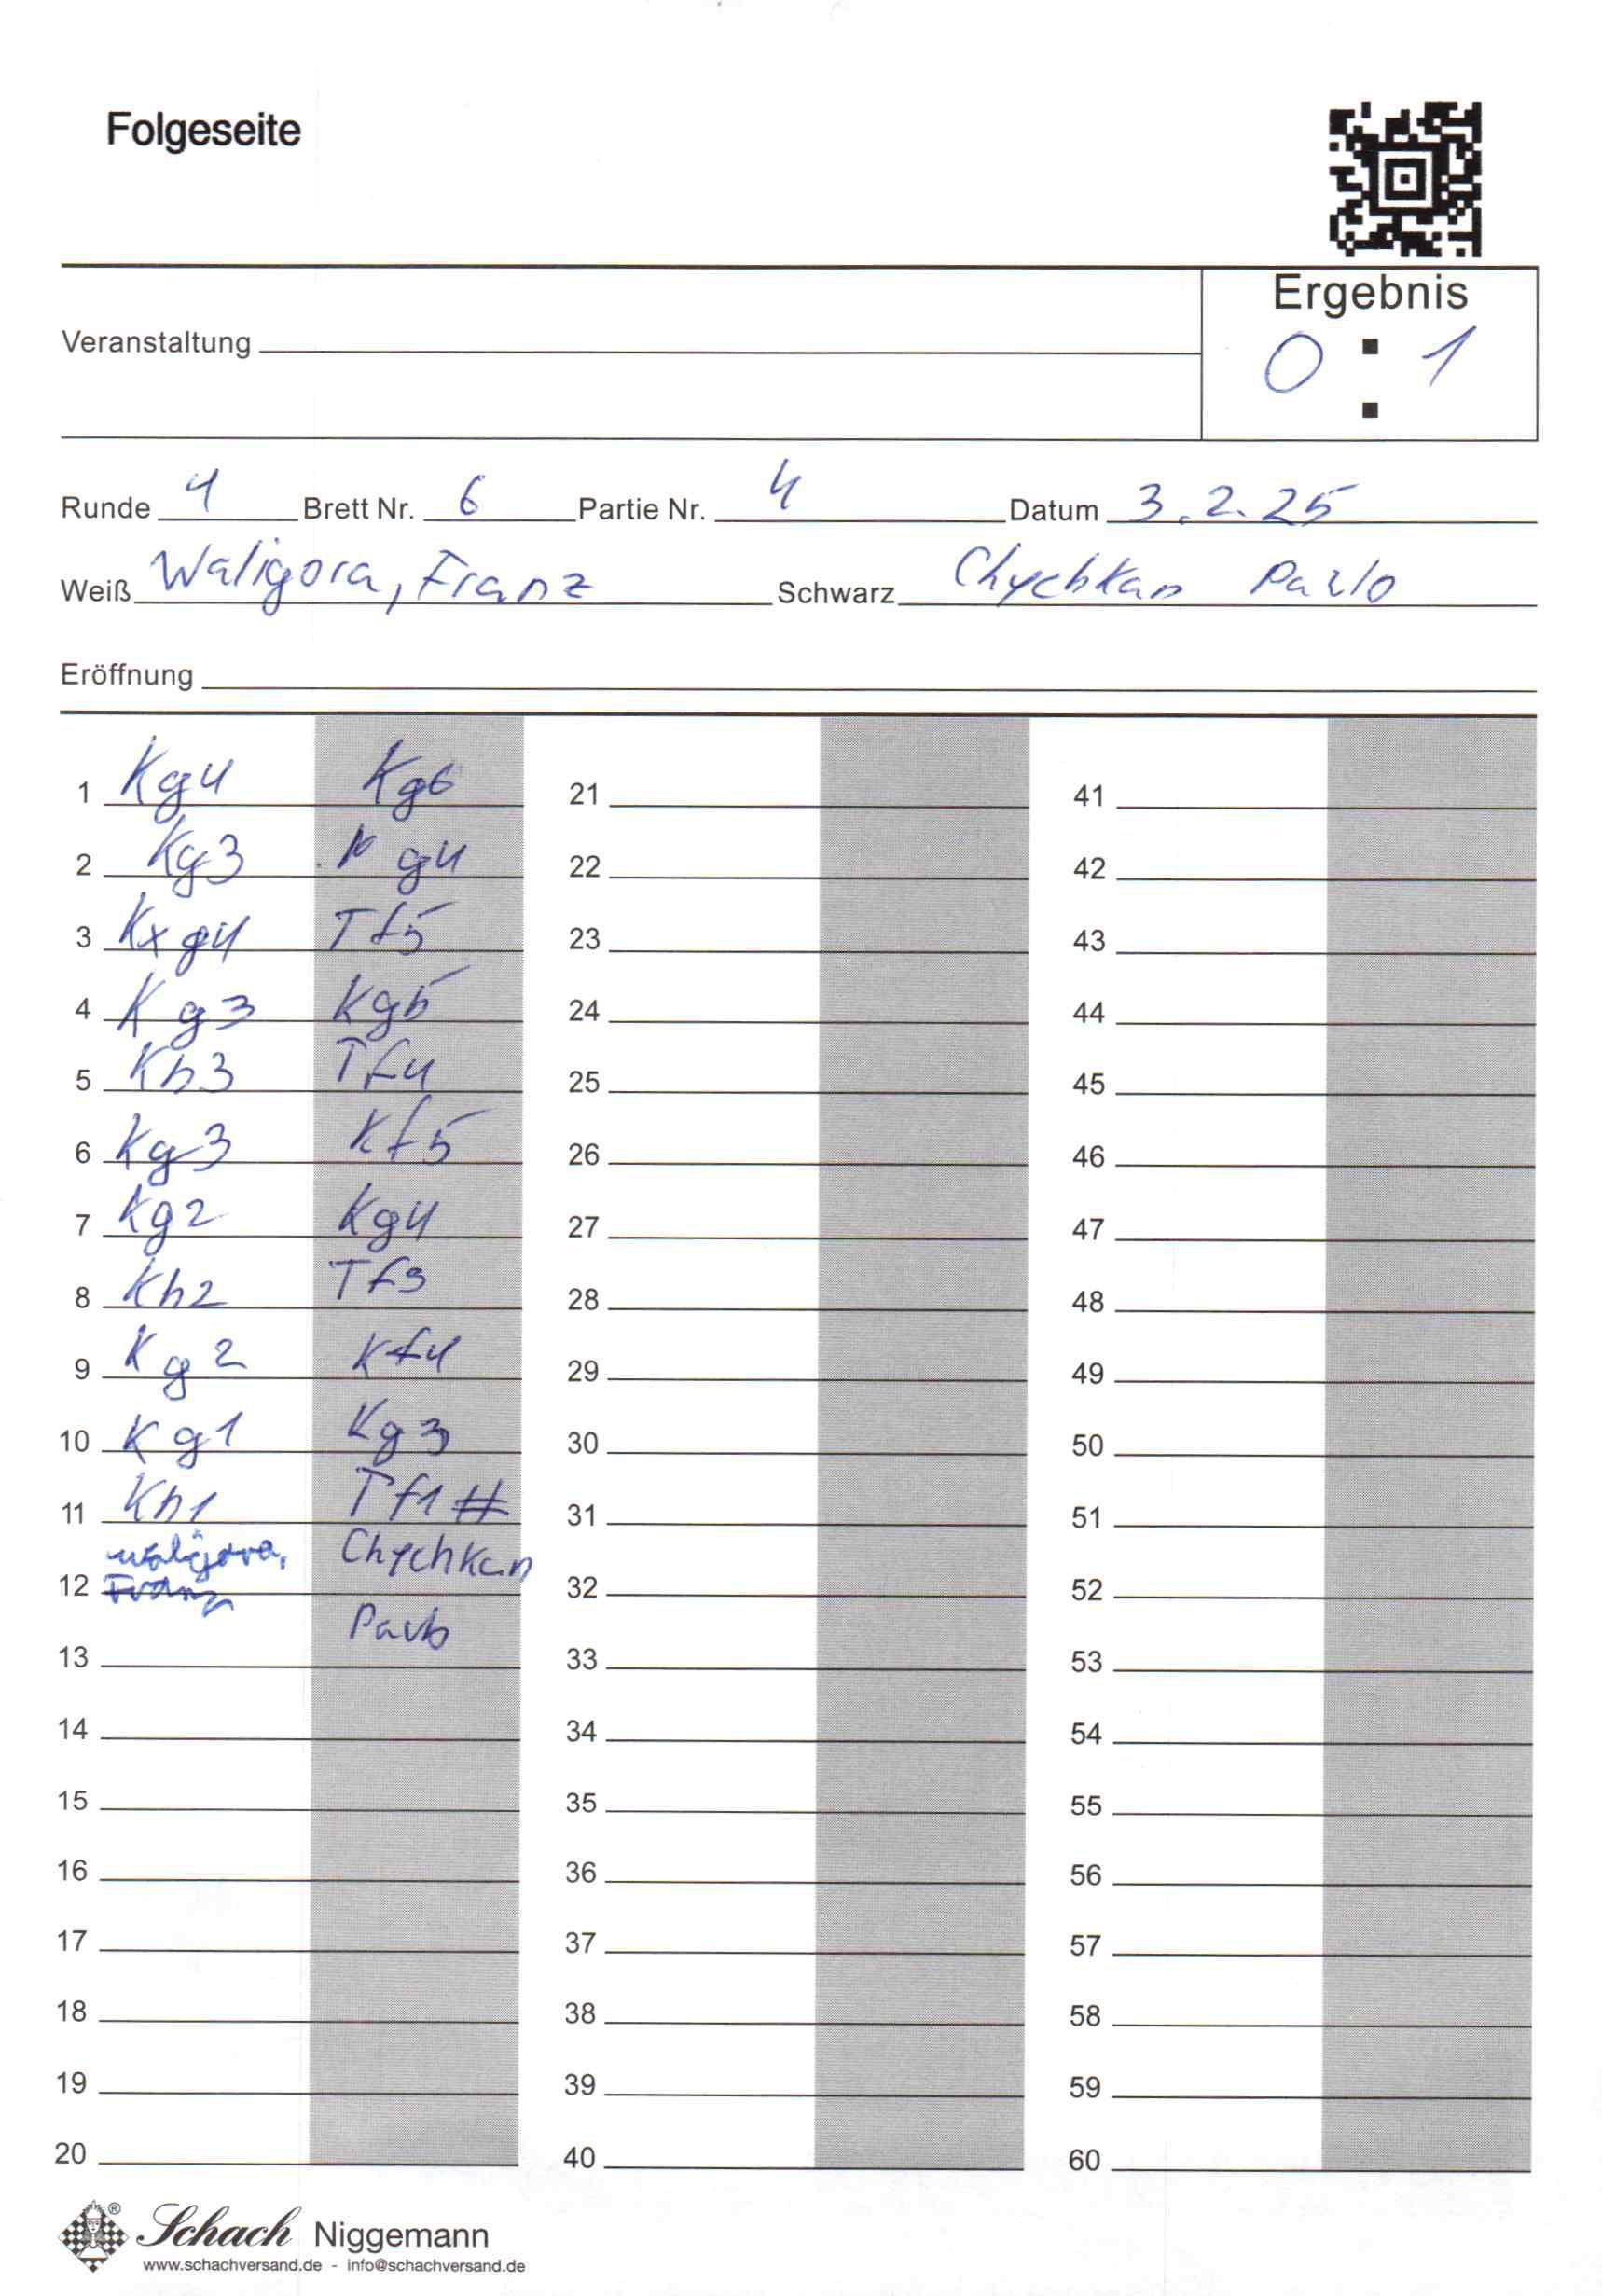 Folgeseite
Ergebnis
0 : 1
Veranstaltung
Runde 4 Brett Nr. 6 Partie Nr. 4 Datum 3.2.25
Weiß Waligora, Franz Schwarz Chychkan Pavlo
Eröffnung
1 Kg4 Kg6 21 41
2 Kg3 g4 22 42
3 Kxg4 Tf5 23 43
4 Kg3 Kg5 24 44
5 Kh3 Tf4 25 45
6 Kg3 Kf5 26 46
7 Kg2 Kg4 27 47
8 Kh2 Tf3 28 48
9 Kg2 Kf4 29 49
10 Kg1 Kg3 30 50
11 Kh1 Tf1# 31 51
Waligora, Chychkan
12 Franz 32 52
Pavlo
13 33 53
14 34 54
15 35 55
16 36 56
17 37 57
18 38 58
19 39 59
20 40 60
® Schach Niggemann
www.schachversand.de - info@schachversand.de